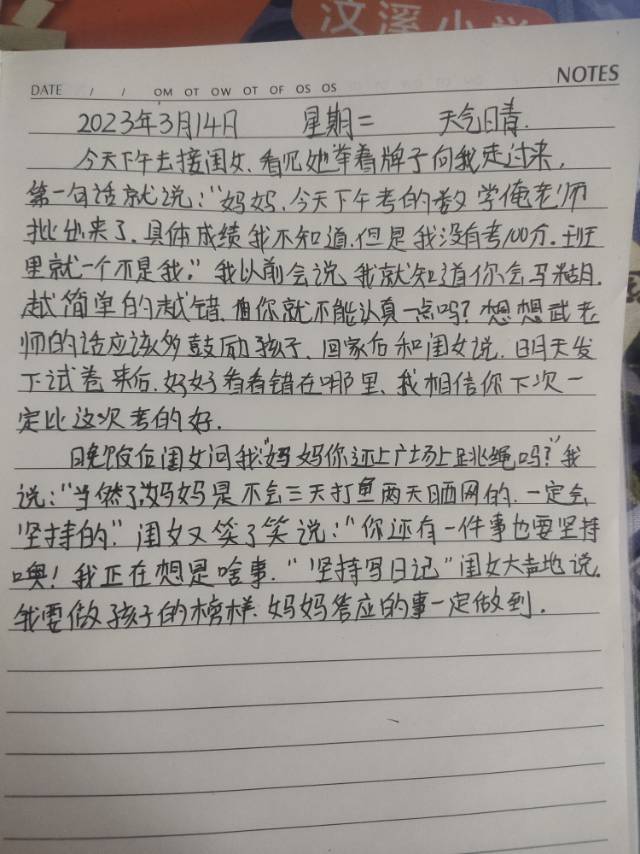 汶溪小学
NOTES
DATE / / OM OT OW OT OF OS OS
2023年3月14日 星期二 天气晴.
今天下午去接闺女,看见她举着牌子向我走过来,
第一句话就说:“妈妈,今天下午考的数学俺老师
批出来了,具体成绩我不知道,但是我没有考100分.班
里就一个不是我.”我以前会说,我就知道你会马糊.
越简单的越错,你就不能认真一点吗?想想武老
师的话应该多鼓励孩子,回家后和闺女说,明天发
下试卷来后,好好看看错在哪里,我相信你下次一
定比这次考的好.
晚饭后闺女问我:“妈妈你还上广场上跳绳吗?”我
说:“当然了,妈妈是不会三天打鱼两天晒网的.一定会
坚持的.”闺女又笑了笑说:“你还有一件事也要坚持
噢!我正在想是啥事.“坚持写日记”闺女大声地说.
我要做孩子的榜样.妈妈答应的事一定做到.